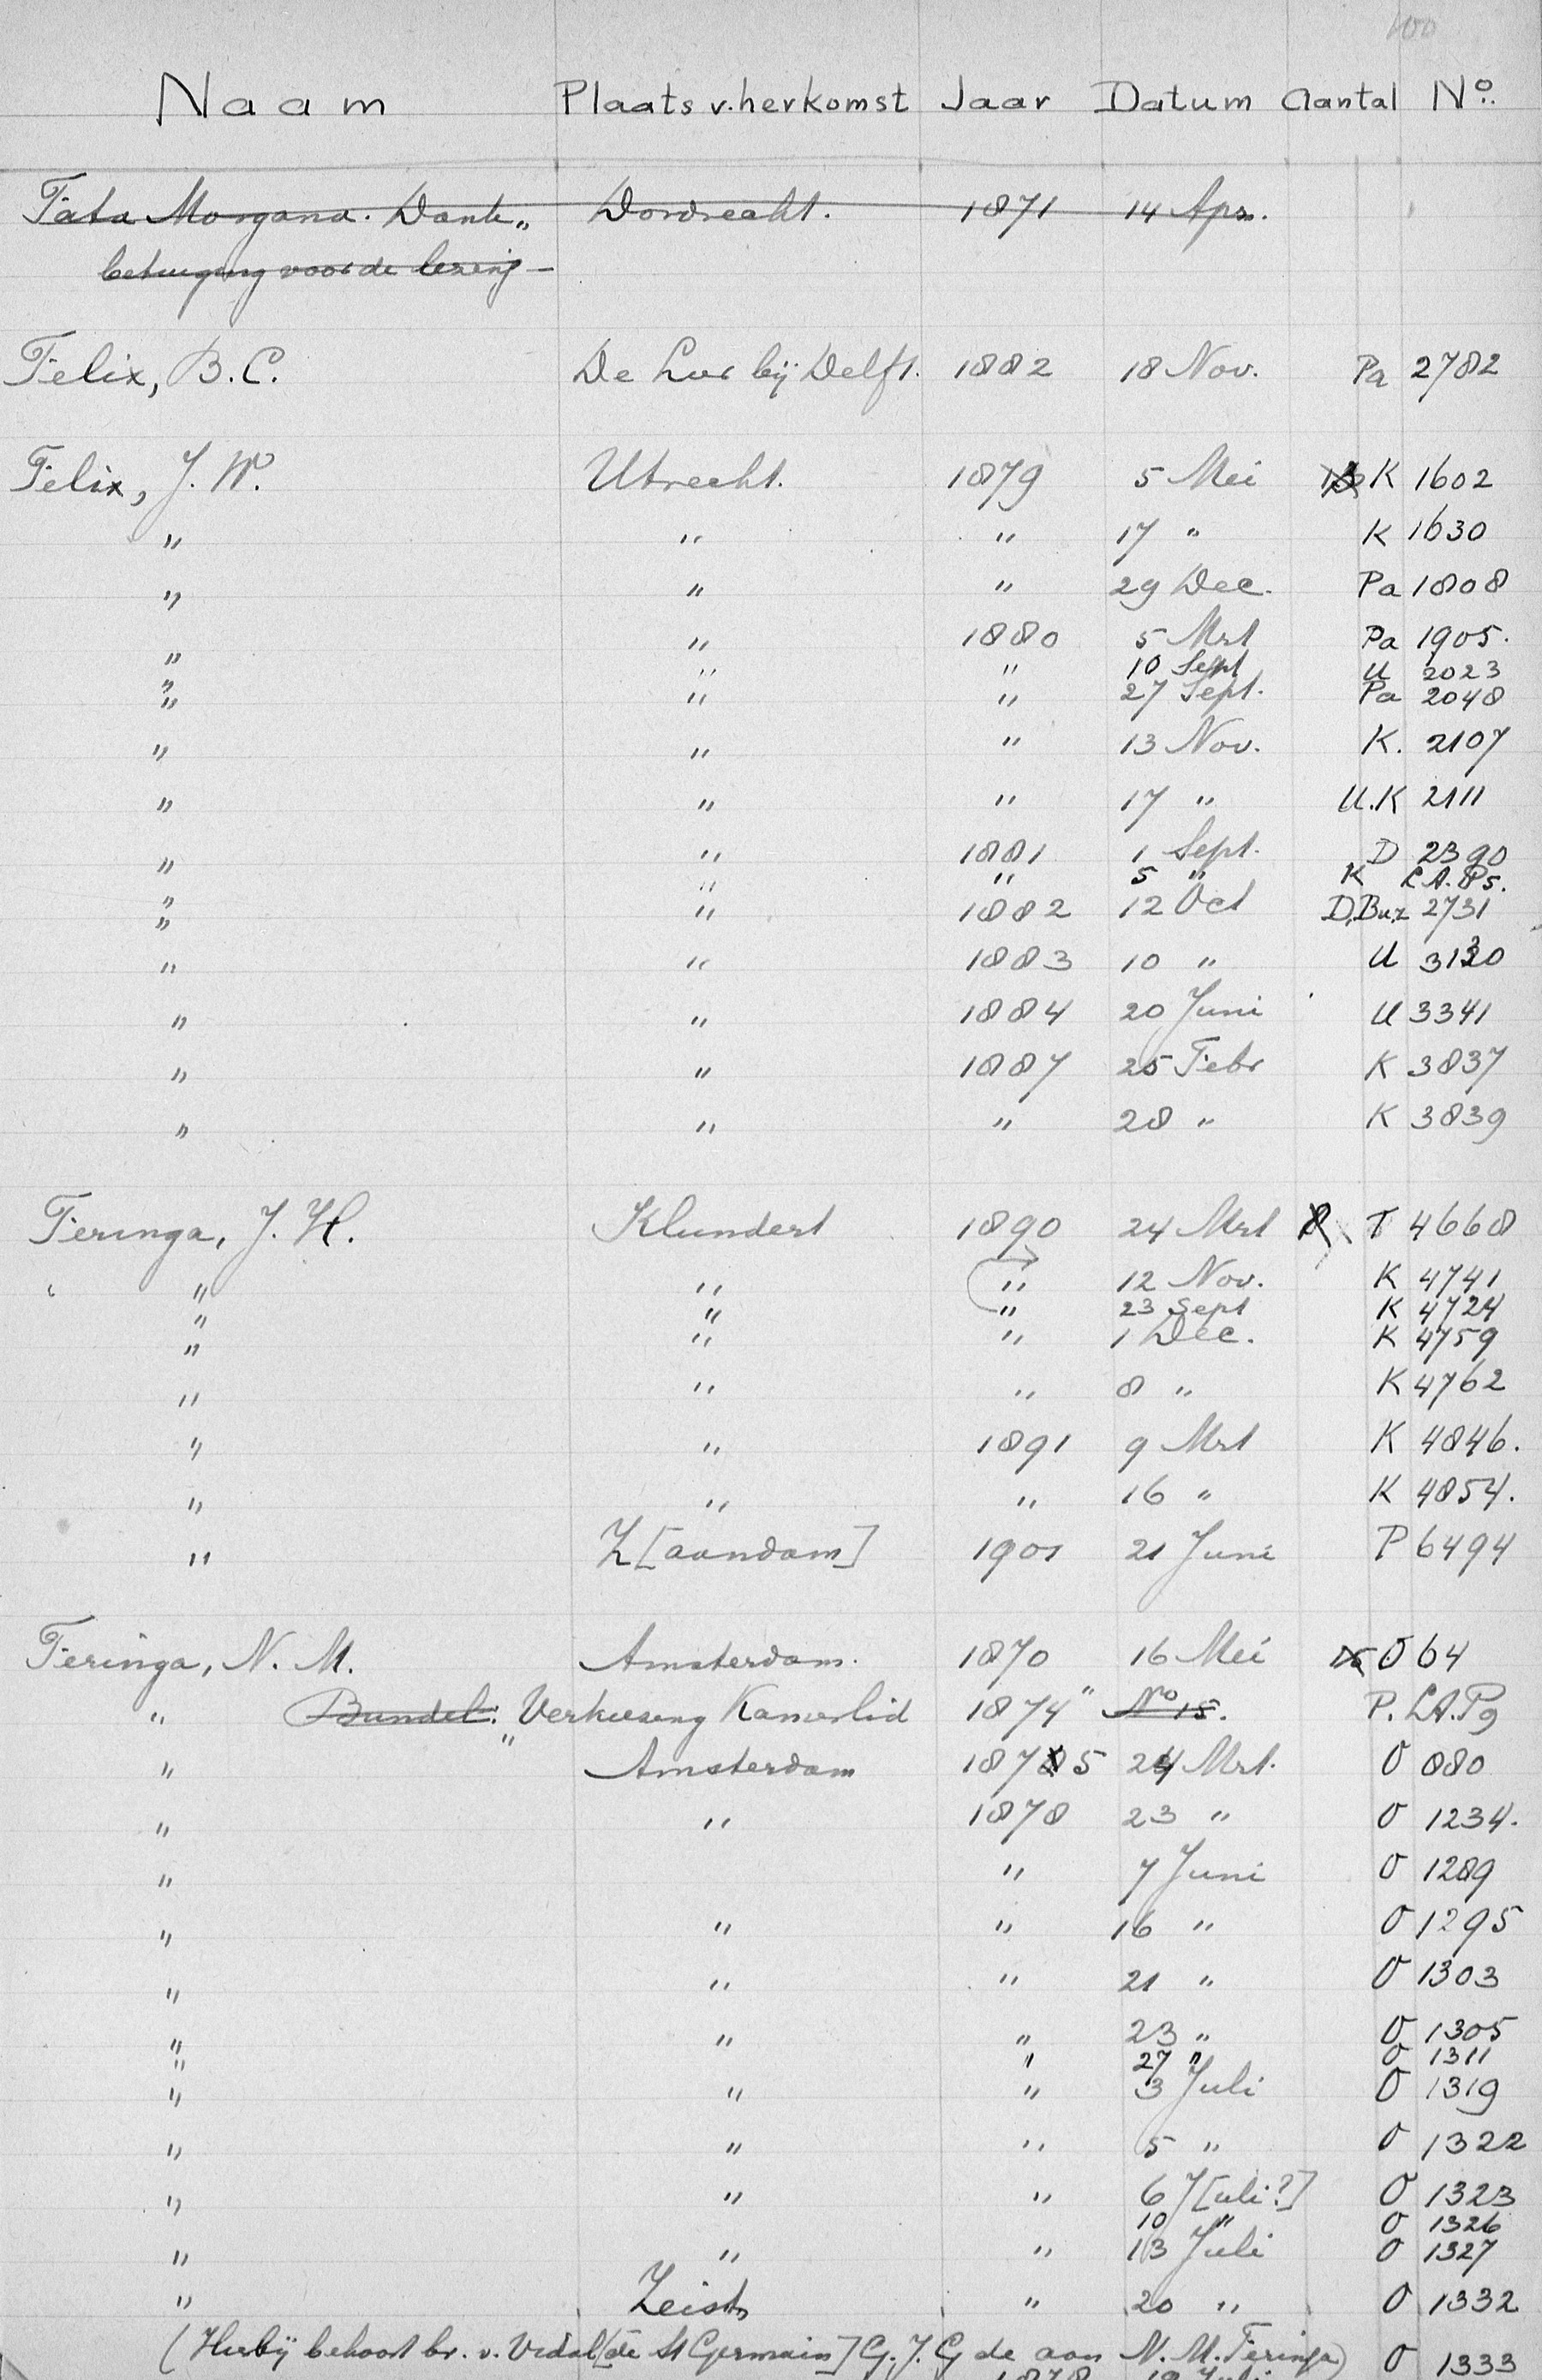 100
Naam Plaats v. herkomst Jaar Datum Aantal No.
Fata Morgana. Dank„ Dordrecht. 1871 14 Apr.
betuiging voor de lezing –
Felix, B.C. De Lier bij Delft. 1882 18 Nov. Pa 2782
Felix, J. W. Utrecht. 1879 5 Mei K 1602
" " " 17 " K 1630
" " " 29 Dec. Pa 1808
" " 1880 5 Mrt Pa 1905.
" " " 10 Sept U 2023
" " " 27 Sept. Pa 2048
" " " 13 Nov. K. 2107
" " " 17 " U.K 2111
" " 1881 1 Sept. D 2390
" " " 5 " K L.A. P5.
" " 1882 12 Oct D,Buz 2731
" " 1883 10 " U 3130
" " 1884 20 Juni U 3341
" " 1887 25 Febr K 3837
" " " 28 " K 3839
Feringa, J. H. Klundert 1890 24 Mrt 8 T 4668
" " " 12 Nov. K 4741
" " " 23 Sept K 4724
" " " 1 Dec. K 4759
" " " 8 " K 4762
" " 1891 9 Mrt K 4846.
" " " 16 " K 4854.
" Z[aandam] 1901 21 Juni P 6494
Feringa, N. M. Amsterdam. 1870 16 Mei 15 O 64
" Bundel: „Verkiesing Kamerlid 1874" No 15. P. L.A. P9
" Amsterdam 1875 24 Mrt. O 880
" " 1878 23 " O 1234.
" " 7 Juni O 1289
" " " 16 " O 1295
" " " 21 " O 1303
" " " 23 " O 1305
" " 27 " O 1311
" " " 3 Juli O 1319
" " " 5 " O 1322
" " " 6 J[uli?] O 1323
10 " O 1326
" " " 13 Juli O 1327
" Zeist " 20 " O 1332
(Hierbij behoort br. v. Vidal [de St Germain] G. J. G de aan N. M. Feringa) O 1333